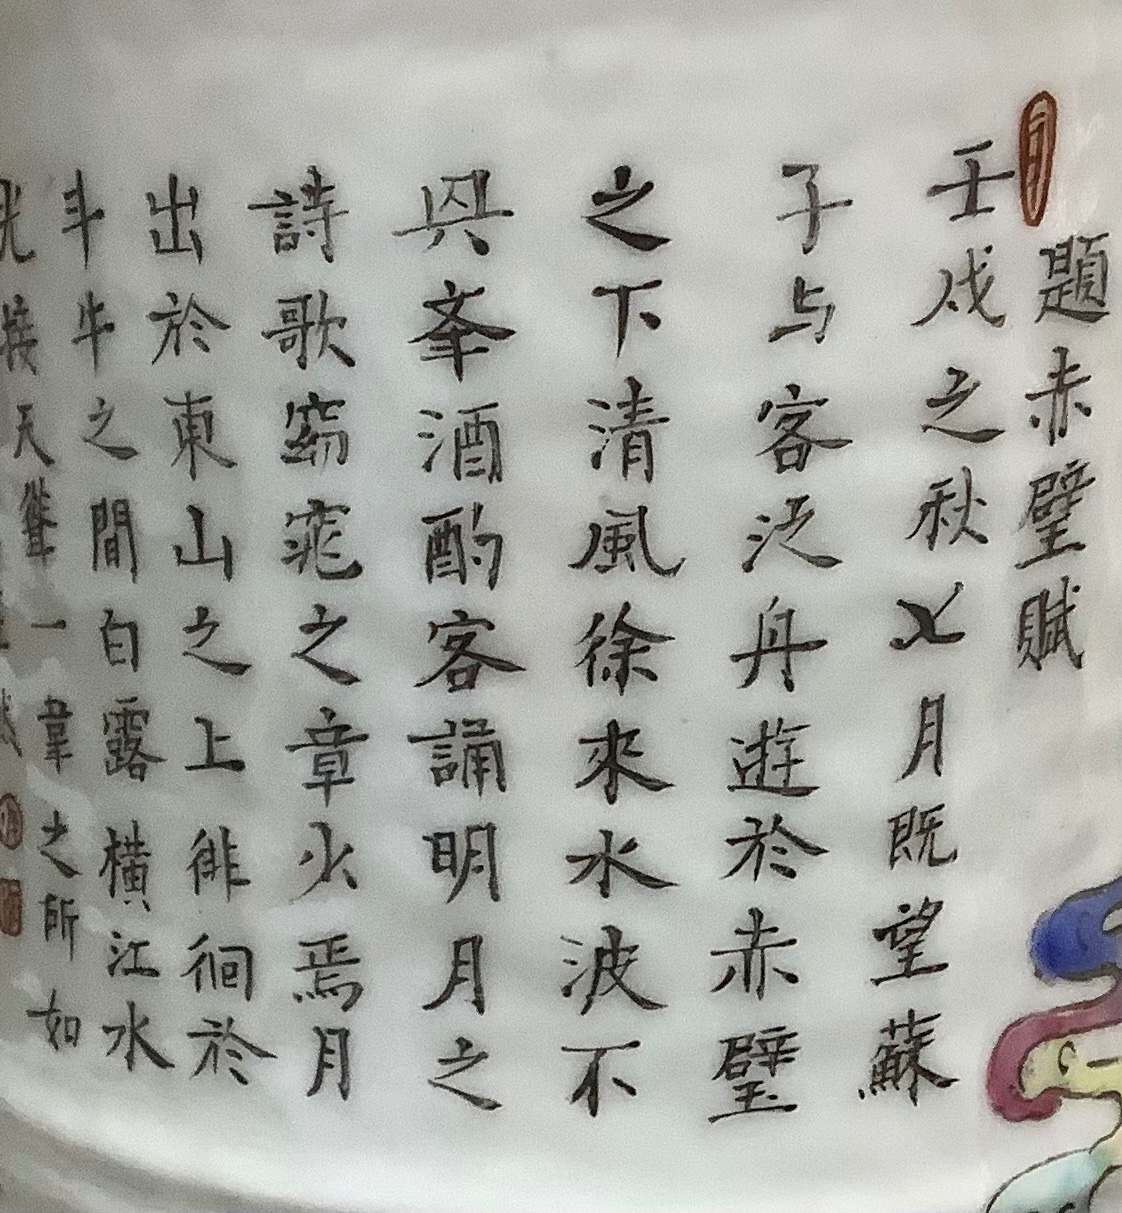 題赤壁賦
壬戌之秋七月既望蘇
子与客泛舟遊於赤壁
之下清風徐來水波不
興奉酒酌客誦明月之
詩歌窈窕之章火焉月
出於東山之上徘徊於
斗牛之間白露橫江水
光接天聳一葦之所如